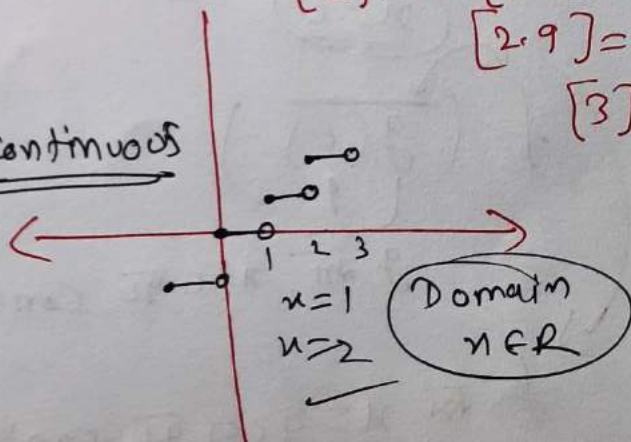 [2.9] =
[3]
continuous
1 2 3
x=1
x=2
Domain
x∈R